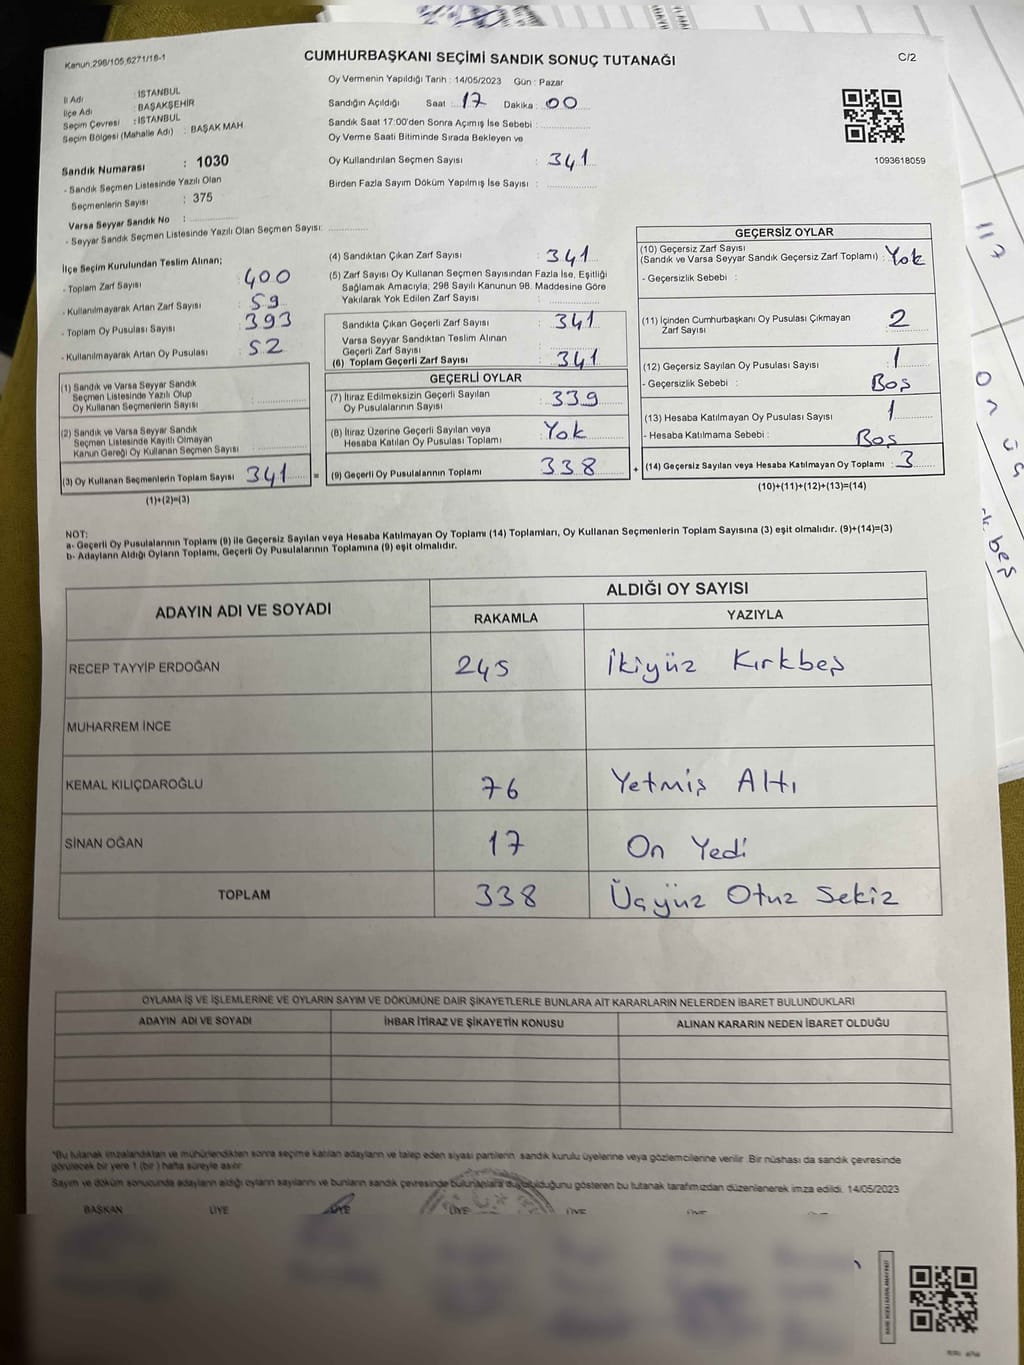 Kanun,298/105,6271/16-1
CUMHURBAŞKANI SEÇİMİ SANDIK SONUÇ TUTANAĞI
C/2
İl Adı : İSTANBUL
İlçe Adı : BAŞAKŞEHİR
Seçim Çevresi : İSTANBUL
Seçim Bölgesi (Mahalle Adı) : BAŞAK MAH
Oy Vermenin Yapıldığı Tarih : 14/05/2023 Gün : Pazar
Sandığın Açıldığı Saat : 17 Dakika : 00
Sandık Saat 17:00'den Sonra Açımış İse Sebebi :
Oy Verme Saati Bitiminde Sırada Bekleyen ve
Oy Kullandırılan Seçmen Sayısı : 341
Birden Fazla Sayım Döküm Yapılmış İse Sayısı :
1093618059
Sandık Numarası : 1030
- Sandık Seçmen Listesinde Yazılı Olan
Seçmenlerin Sayısı : 375
Varsa Seyyar Sandık No :
- Seyyar Sandık Seçmen Listesinde Yazılı Olan Seçmen Sayısı:
İlçe Seçim Kurulundan Teslim Alınan;
- Toplam Zarf Sayısı : 400
- Kullanılmayarak Artan Zarf Sayısı : 59
- Toplam Oy Pusulası Sayısı : 393
- Kullanılmayarak Artan Oy Pusulası : 52
(1) Sandık ve Varsa Seyyar Sandık
Seçmen Listesinde Yazılı Olup
Oy Kullanan Seçmenlerin Sayısı :
(2) Sandık ve Varsa Seyyar Sandık
Seçmen Listesinde Kayıtlı Olmayan
Kanun Gereği Oy Kullanan Seçmen Sayısı :
(3) Oy Kullanan Seçmenlerin Toplam Sayısı 341 =
(1)+(2)=(3)
(4) Sandıktan Çıkan Zarf Sayısı : 341
(5) Zarf Sayısı Oy Kullanan Seçmen Sayısından Fazla İse, Eşitliği
Sağlamak Amacıyla; 298 Sayılı Kanunun 98. Maddesine Göre
Yakılarak Yok Edilen Zarf Sayısı :
Sandıkta Çıkan Geçerli Zarf Sayısı : 341
Varsa Seyyar Sandıktan Teslim Alınan
Geçerli Zarf Sayısı :
(6) Toplam Geçerli Zarf Sayısı : 341
GEÇERLİ OYLAR
(7) İtiraz Edilmeksizin Geçerli Sayılan
Oy Pusulalarının Sayısı : 339
(8) İtiraz Üzerine Geçerli Sayılan veya
Hesaba Katılan Oy Pusulası Toplamı : Yok
(9) Geçerli Oy Pusulalarının Toplamı : 338 +
GEÇERSİZ OYLAR
(10) Geçersiz Zarf Sayısı
(Sandık ve Varsa Seyyar Sandık Geçersiz Zarf Toplamı) : Yok
- Geçersizlik Sebebi :
(11) İçinden Cumhurbaşkanı Oy Pusulası Çıkmayan
Zarf Sayısı : 2
(12) Geçersiz Sayılan Oy Pusulası Sayısı : 1
- Geçersizlik Sebebi : Boş
(13) Hesaba Katılmayan Oy Pusulası Sayısı : 1
- Hesaba Katılmama Sebebi : Boş
(14) Geçersiz Sayılan veya Hesaba Katılmayan Oy Toplamı : 3
(10)+(11)+(12)+(13)=(14)
NOT:
a- Geçerli Oy Pusulalarının Toplamı (9) ile Geçersiz Sayılan veya Hesaba Katılmayan Oy Toplamı (14) Toplamları, Oy Kullanan Seçmenlerin Toplam Sayısına (3) eşit olmalıdır. (9)+(14)=(3)
b- Adayların Aldığı Oyların Toplamı, Geçerli Oy Pusulalarının Toplamına (9) eşit olmalıdır.
ADAYIN ADI VE SOYADI
ALDIĞI OY SAYISI
RAKAMLA YAZIYLA
RECEP TAYYİP ERDOĞAN 245 İkiyüz Kırkbeş
MUHARREM İNCE
KEMAL KILIÇDAROĞLU 76 Yetmiş Altı
SİNAN OĞAN 17 On Yedi
TOPLAM 338 Üçyüz Otuz Sekiz
OYLAMA İŞ VE İŞLEMLERİNE VE OYLARIN SAYIM VE DÖKÜMÜNE DAİR ŞİKAYETLERLE BUNLARA AİT KARARLARIN NELERDEN İBARET BULUNDUKLARI
ADAYIN ADI VE SOYADI İHBAR İTİRAZ VE ŞİKAYETİN KONUSU ALINAN KARARIN NEDEN İBARET OLDUĞU
*Bu tutanak imzalandıktan ve mühürlendikten sonra seçime katılan adayların ve talep eden siyasi partilerin sandık kurulu üyelerine veya gözlemcilerine verilir. Bir nüshası da sandık çevresinde
görülecek bir yere 1 (bir) hafta süreyle asılır.
Sayım ve döküm sonucunda adayların aldığı oyların sayılarını ve bunların sandık çevresinde bulunanlara duyurulduğunu gösteren bu tutanak tarafımızdan düzenlenerek imza edildi. 14/05/2023
BAŞKAN ÜYE ÜYE ÜYE ÜYE
117